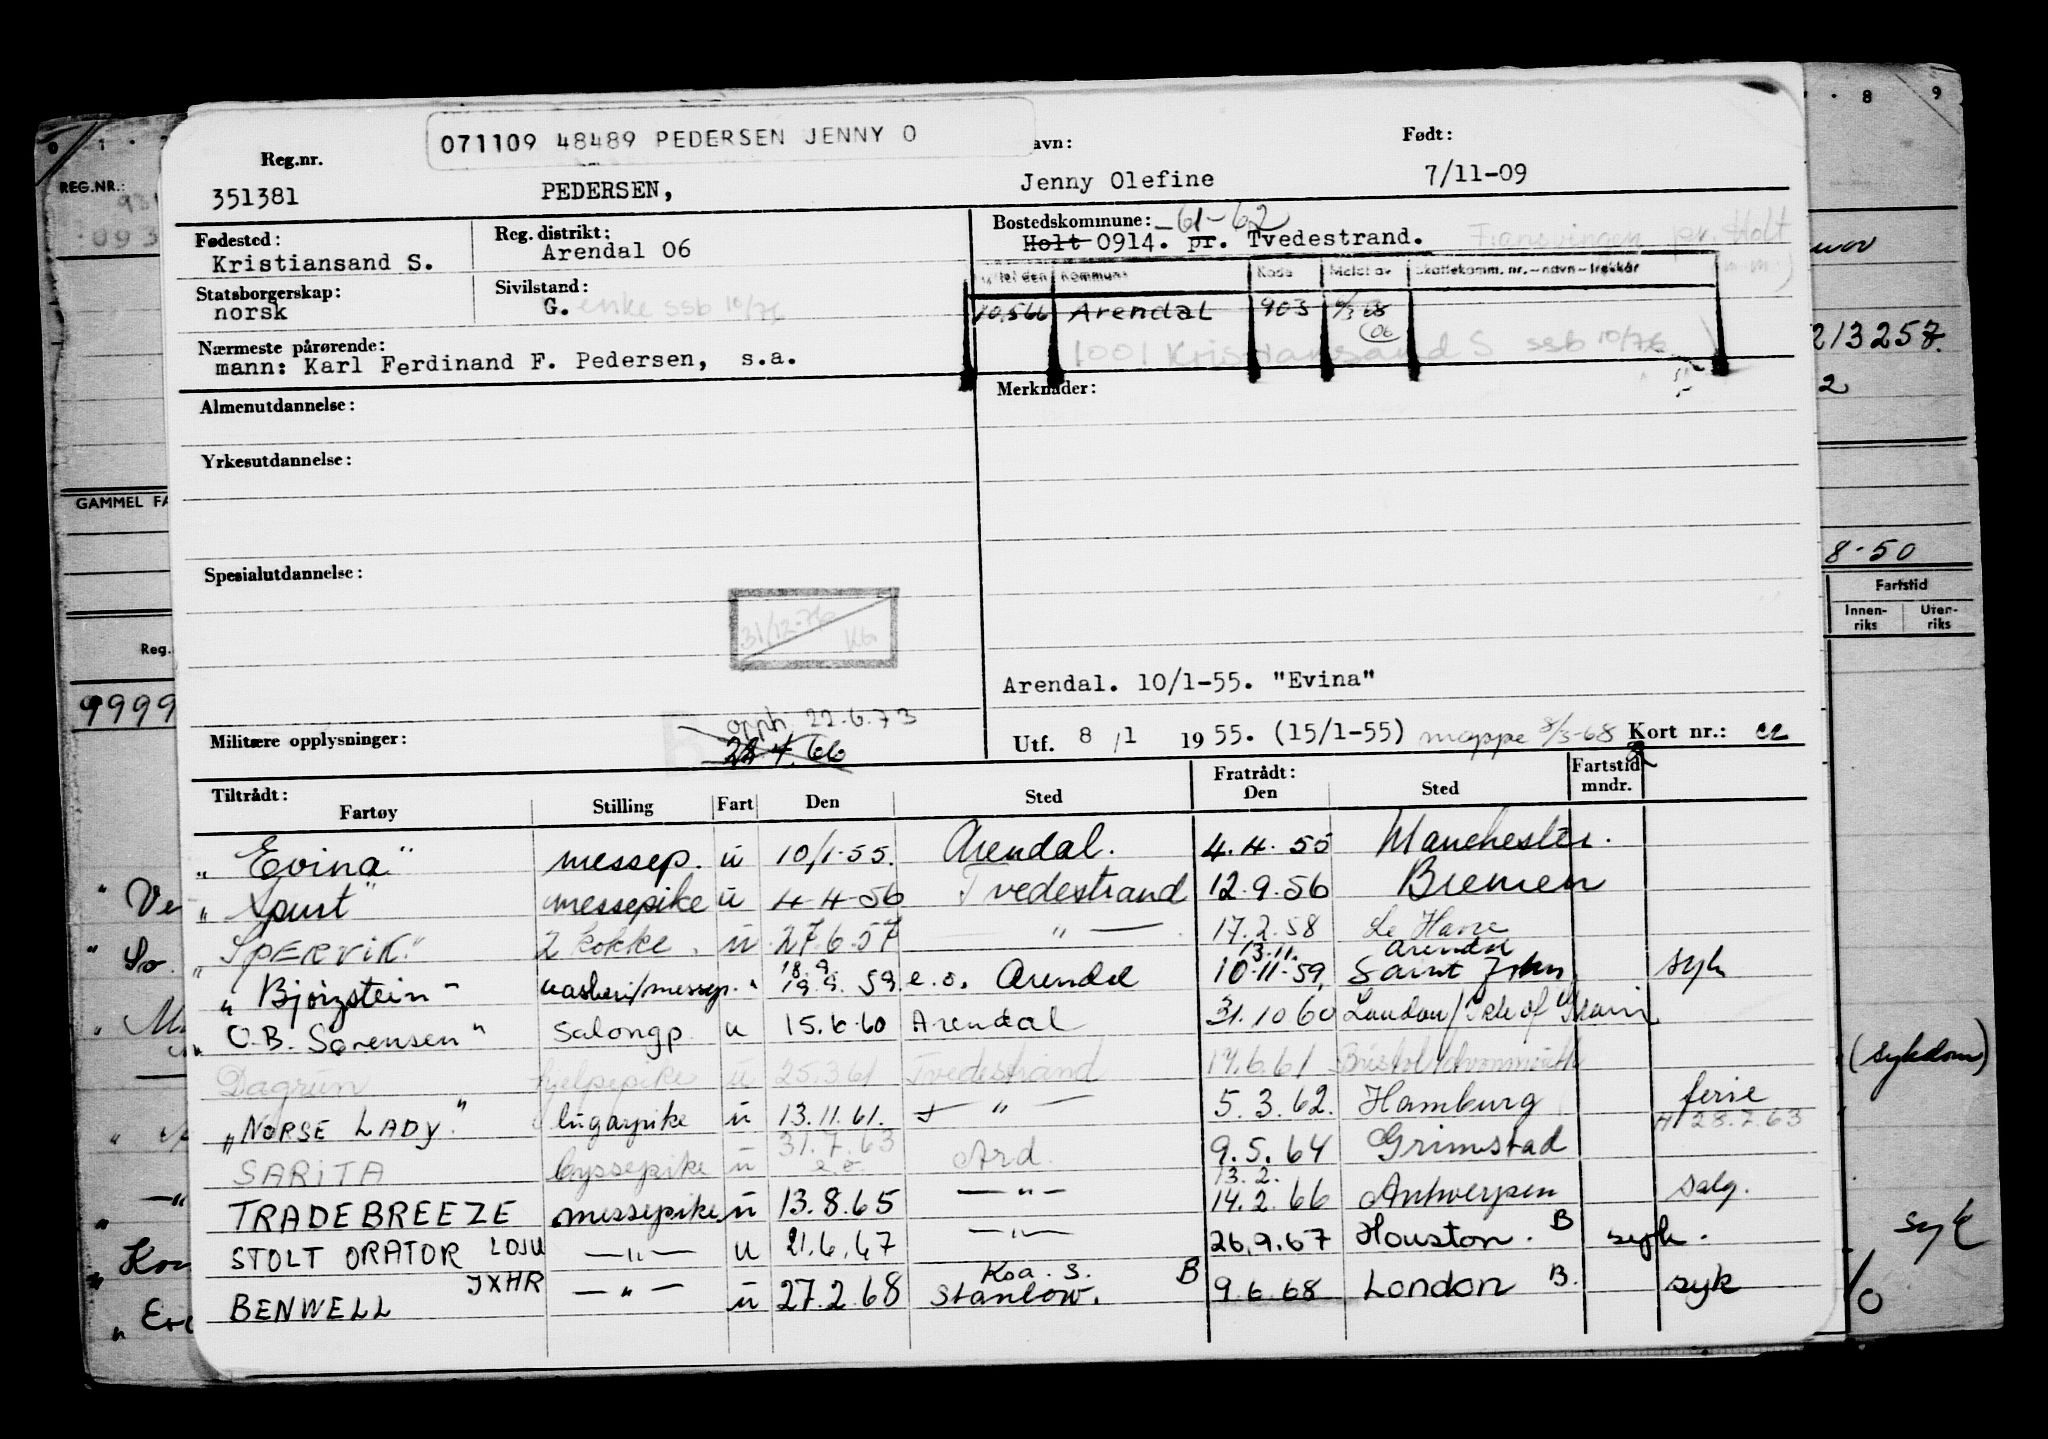 071109 48489 PEDERSEN JENNY O
Reg.nr. avn: Født:
351381 PEDERSEN, Jenny Olefine 7/11-09
Fødested: Reg. distrikt: Bostedskommune: 61-62
Kristiansand S. Arendal 06 Holt 0914. pr. Tvedestrand.
Statsborgerskap: Sivilstand:
norsk G. enke ssb 10/76
Kommune Kode Meldt av Skattekomm. nr.-navn-trekkår
Arendal 903
06
1001 Kristiansand S ssb 10/76
Nærmeste pårørende:
mann: Karl Ferdinand F. Pedersen, s.a.
Almenutdannelse: Merknader:
Yrkesutdannelse:
Spesialutdannelse:
31/12-76
Arendal. 10/1-55. "Evina"
opph. 22.6.73
Militære opplysninger:
Utf. 8/1 1955. (15/1-55) mappe 8/3-68 Kort nr.:
Tiltrådt: Fratrådt: Fartstid
Fartøy Stilling Fart Den Sted Den Sted mndr.
"Evina" messep. u 10/1-55. Arendal. 4.4.55 Manchester.
messepike u 4-4-56 Tvedestrand 12.9.56 Bremen
"SPERVIK" 2 kokke. u 27.6.57 — " — 17.2.58 Le Havre
18.9. 13.11. Arendal
"Bjørgstein" messep. " 19.9.59 e.o. Arendal 10-11-59, Saint John syk
"O.B. Sørensen" Salongp. u 15.6.60 Arendal 31.10.60 London/Isle of
Dagrun hjelpepike u 25.3.61 Tvedestrand 14.6.61
"NORSE LADY." lugarpike u 13.11.61. — " — 5.3.62. Hamburg ferie
28.7.63
SARITA byssepike u 31.7.63 e.o. Ard. 9.5.64 Grimstad
13.2.
TRADEBREEZE messepike u 13.8.65 — " — 14.2.66 Antwerpen salg.
STOLT ORATOR LOJU — " — u 21.6.67 — " — 26.9.67 Houston. B syk.
BENWELL JXHR — " — u 27.2.68 Stanlow. B 9.6.68 London B. syk
REG.NR.:
GAMMEL FA
Reg.
9999
8 9
213257.
2
8-50
Fartstid
Innen-riks Uten-riks
(sykdom)
syk